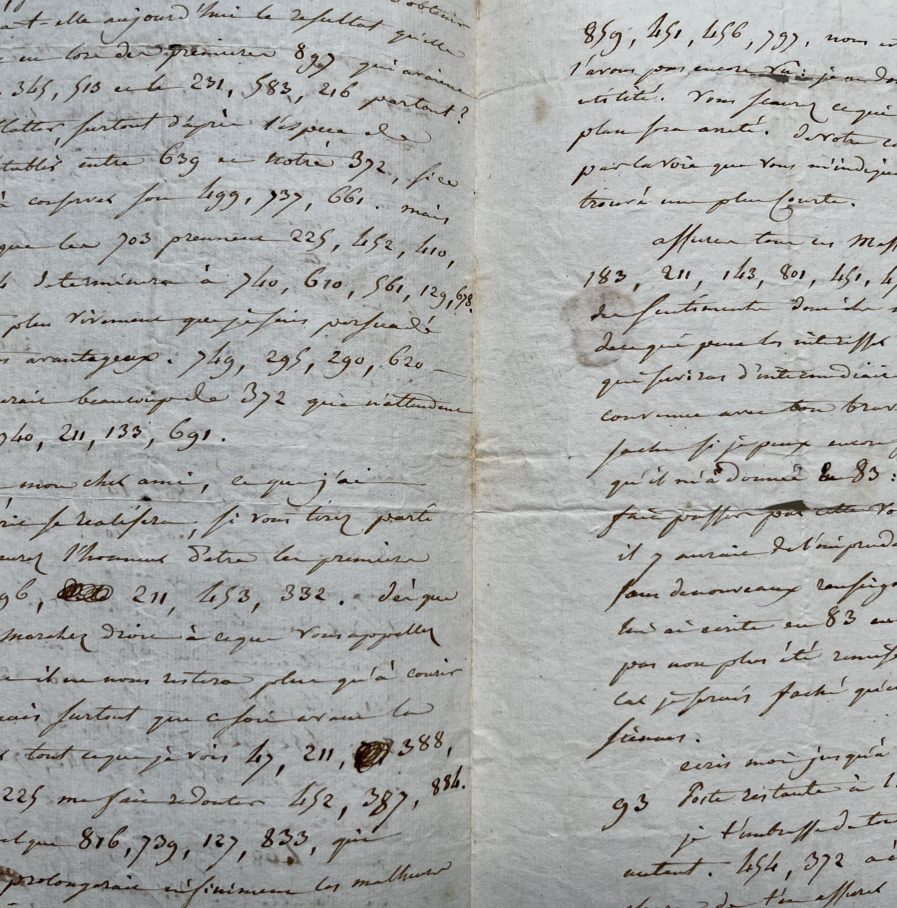 d'obtenir
ant elle aujourd'hui le resultat qu'elle
en lors des premieres 897 qui avaient
345, 513 et le 231, 583, 216 partant?
flatter, surtout d'après l'espece de
etablis entre 639 et notre 372, si ce
à conserver son 499, 737, 661. mais
que les 703 prennent 225, 452, 410,
determinera à 740, 610, 561, 129, 678.
plus vivement que je suis persuadé
avantageux. 749, 295, 290, 620
beaucoup de 372 qui n'attendent
740, 211, 133, 691.
mon cher ami, ce que j'ai
se realisera, si vous tirez parti
aurez l'honneur d'etre les premiers
96, 211, 453, 332. dès que
marchez droit à ce que vous appellez
il ne nous restera plus qu'à courir
mais surtout que ce soit avant la
tout ce que je vois 47, 211, 388,
225 me fait redouter 452, 387, 884.
quelque 816, 739, 127, 833, qui
prolongerait infiniment les malheurs
859, 451, 456, 797, nous
l'avons pas encore
utilité. Vous scaurez ce qui
plus sera arreté. de votre
par la voie que vous m'indiquez
trouvé une plus courte.
assurez tous ces Mess
183, 211, 143, 801, 451,
des sentiments dont
de ce qui peut les interesser
qui servira d'intermediaire
convenu avec bon
sache si je peux encore
qu'il m'a donnée en 83:
fait passer par cette vo
il y aurait de l'imprud
sans de nouveaux renseign
lui ai écrite en 83
pas non plus été remis
car je serais faché qu'
siennes.
ecris moi jusqu'à
93 Poste restante à
je t'embrasse de tou
autant. 454, 372
de t'en assurer